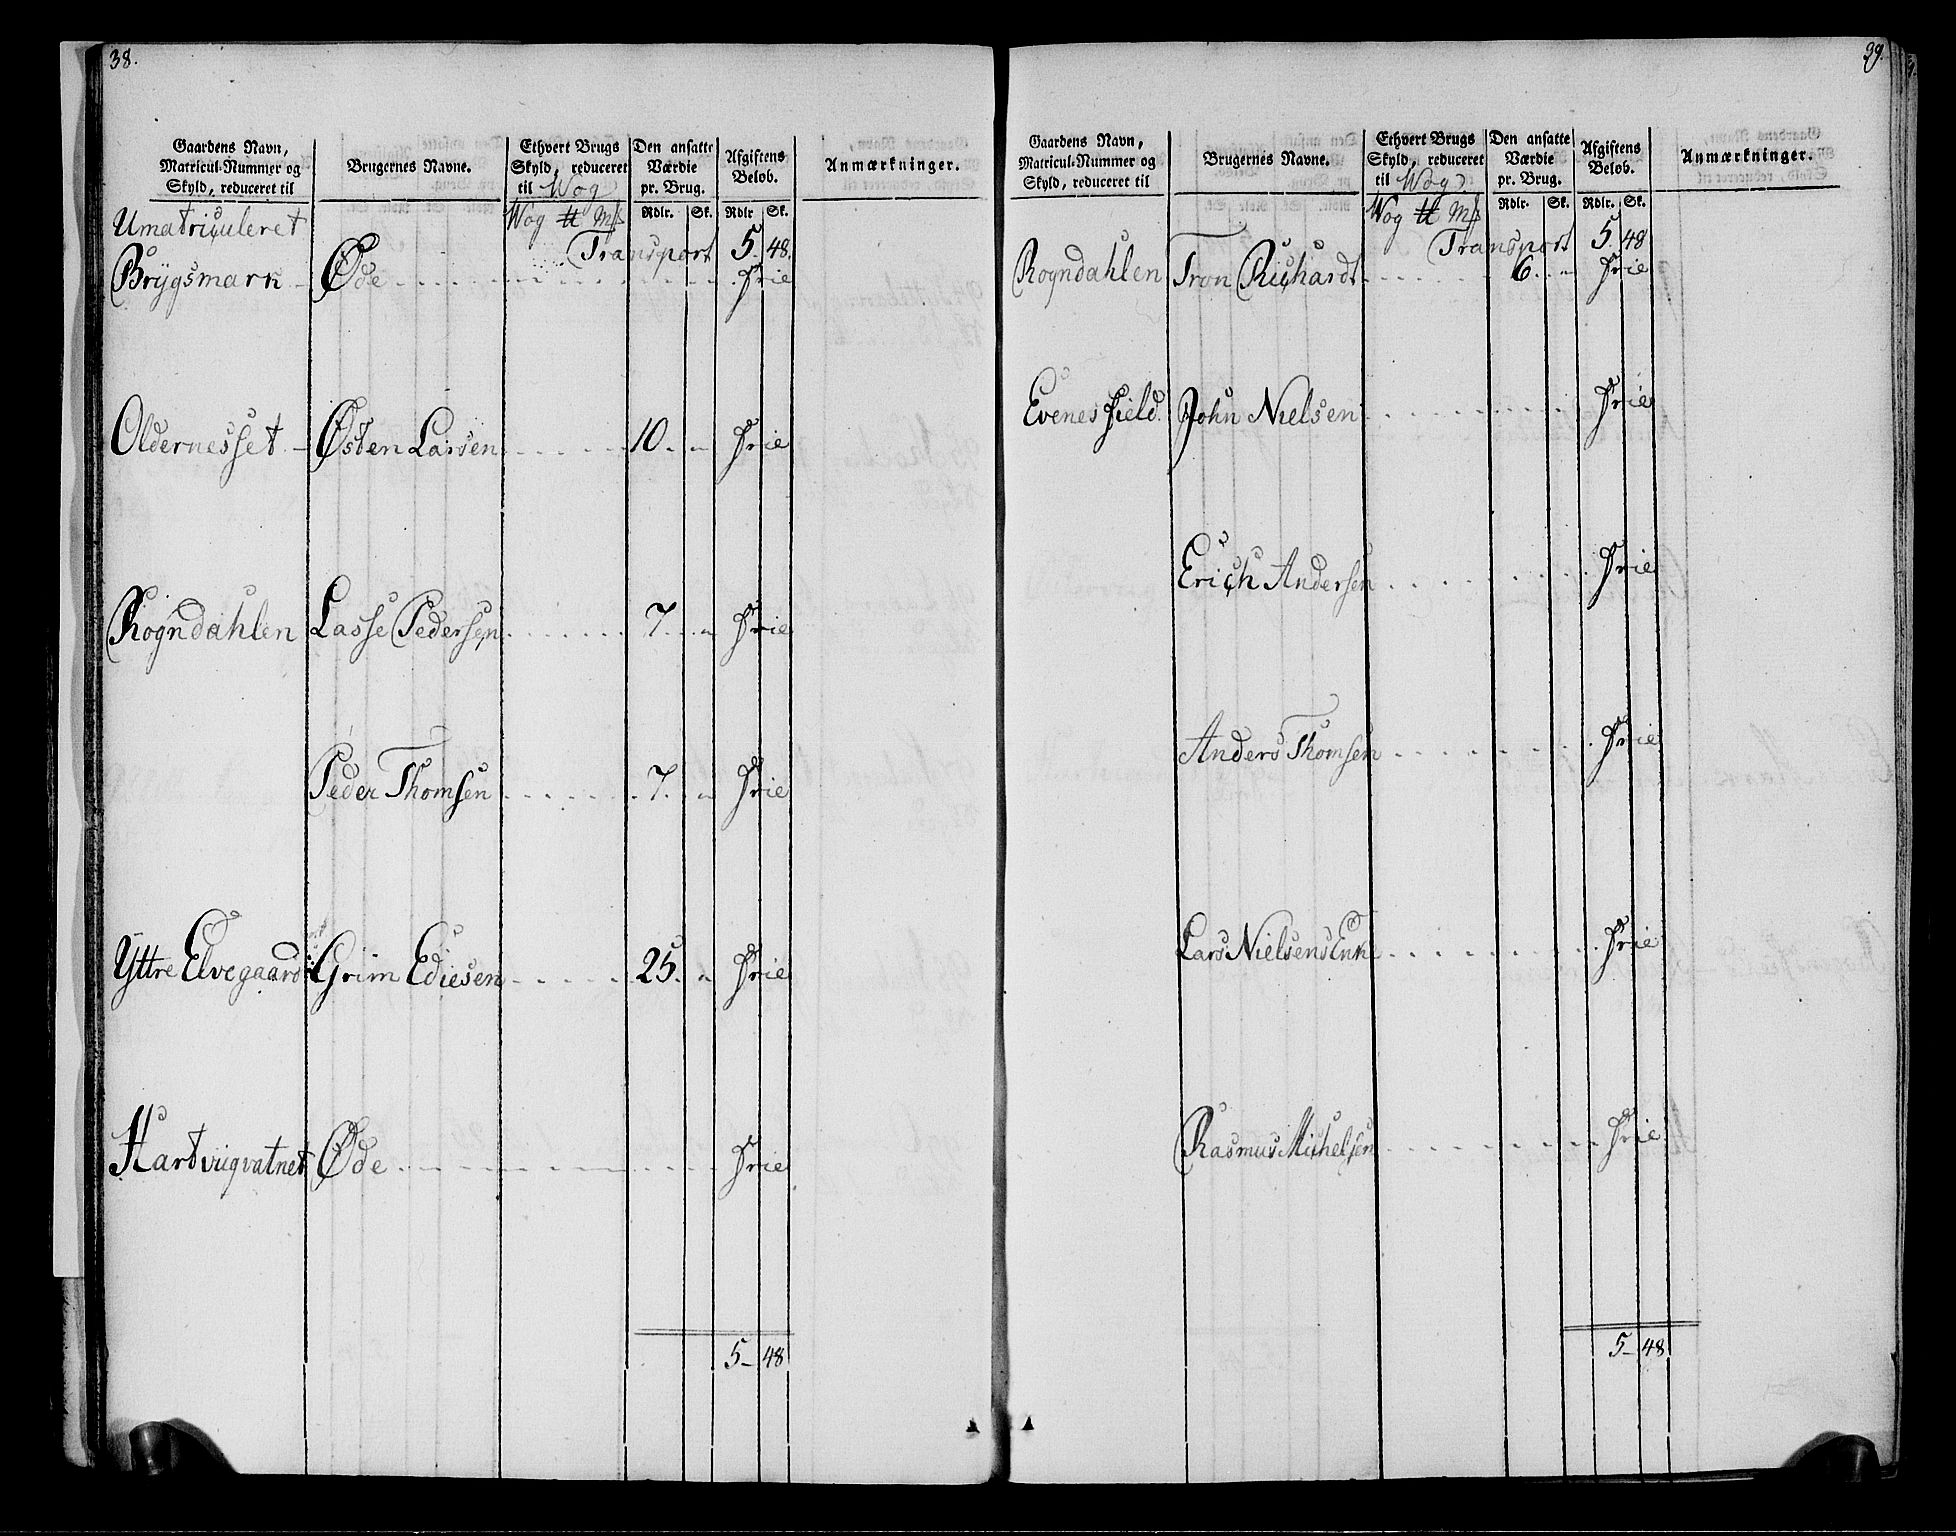 38.
Gaardens Navn, Matricul-Nummer og Skyld, reduceret til
Brugernes Navne.
Ethvert Brugs Skyld, reduceret til Wog
Den ansatte Værdie pr. Brug.
Afgiftens Belob.
Anmærkninger.
Wog ℔ Mk Rdlr. Sk. Rdlr Sk.
Umatriculeret
Transport 5. 48.
Brygsmark Øde Frie
Oldernesset Østen Larsen 10 Frie
Rogndahlen Lasse Pedersen 7 Frie
Peder Thomsen 7 Frie
Yttre Elvegaard Grim Ediesen 25 Frie
Hartvigvatnet Øde Frie
5 48
39.
Gaardens Navn, Matricul-Nummer og Skyld, reduceret til
Brugernes Navne.
Ethvert Brugs Skyld, reduceret til Wog
Den ansatte Værdie pr. Brug.
Afgiftens Belob.
Anmærkninger.
Wog ℔ Mk Rdlr. Sk. Rdlr. Sk.
Transport 5 48
Rogndahlen Tron Richardt 6 Frie
Evenesfield John Nielsen Frie
Erich Andersen Frie
Anders Thomsen Frie
Lars Nielsens Enke Frie
Rasmus Michelsen Frie
5 48